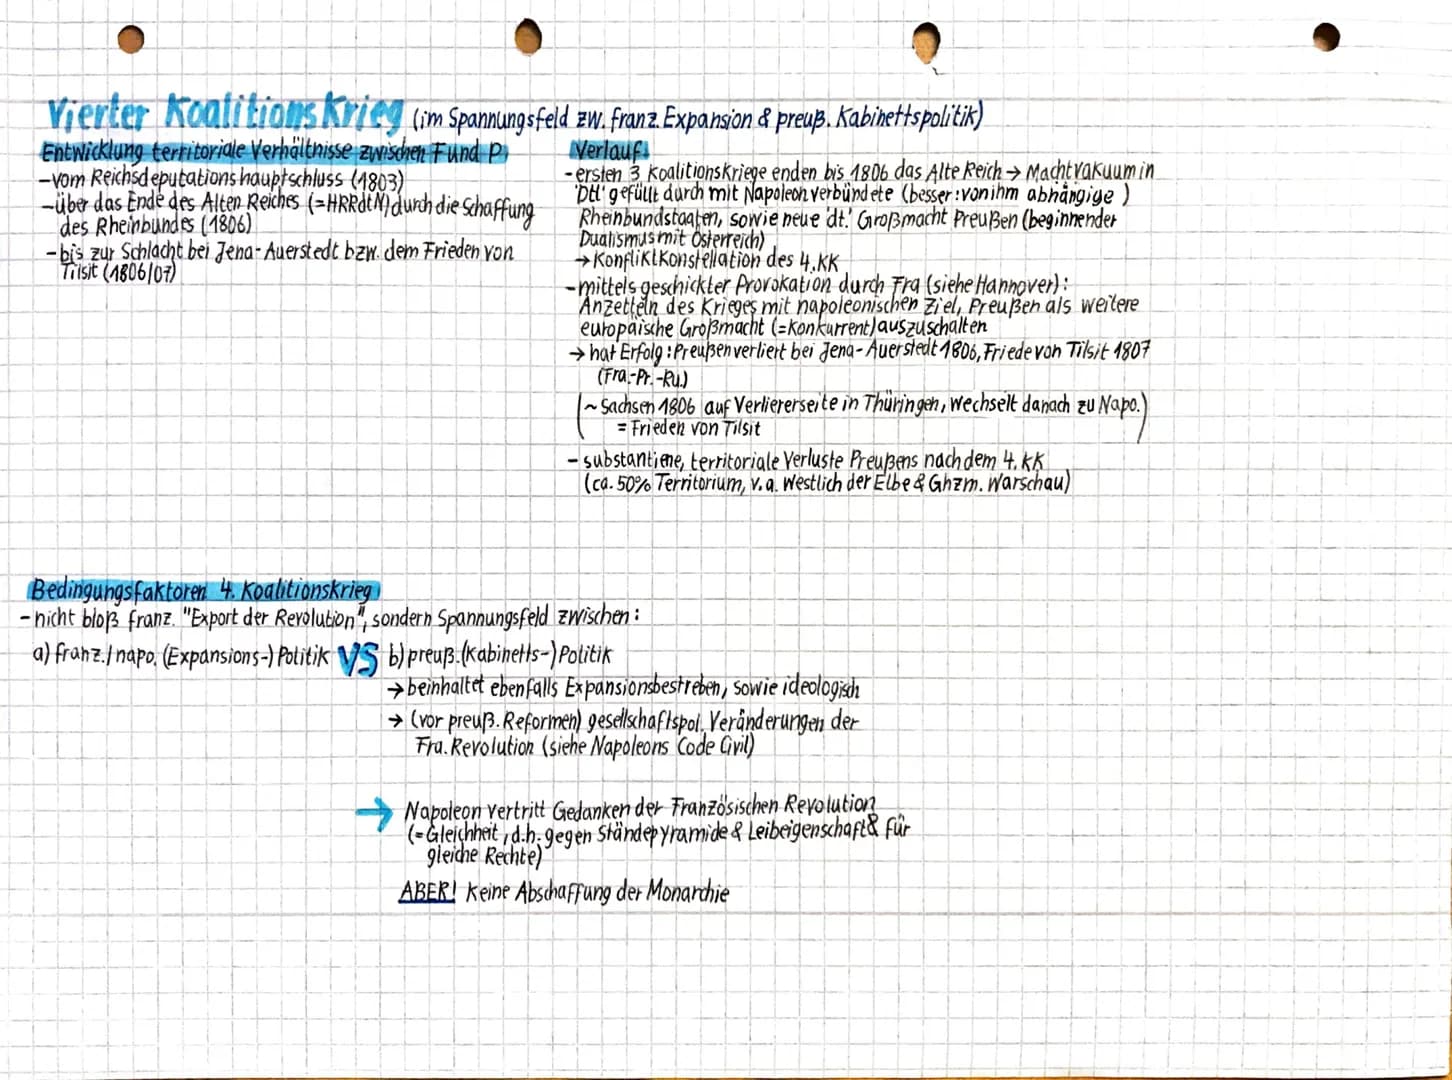 Vierter Koalitionskrieg (im Spannungsfeld zw. franz. Expansion & preuß. Kabinettspolitik)
Entwicklung territoriale Verhältnisse zwischen F und P
- vom Reichsdeputationshauptschluss (1803)
- über das Ende des Alten Reiches (=HRRdtN) durch die Schaffung
des Rheinbundes (1806)
- bis zur Schlacht bei Jena-Auerstedt bzw. dem Frieden von
Tilsit (1806/07)
Verlauf
- ersten 3 Koalitionskriege enden bis 1806 das Alte Reich → Machtvakuum in
'Dtl' gefüllt durch mit Napoleon verbündete (besser: von ihm abhängige)
Rheinbundstaaten, sowie neue 'dt.' Großmacht Preußen (beginnender
Dualismus mit Österreich)
→ Konfliktkonstellation des 4. KK
- mittels geschickter Provokation durch Fra (siehe Hannover):
Anzetteln des Krieges mit napoleonischen Ziel, Preußen als weitere
europäische Großmacht (=Konkurrent) auszuschalten
→ hat Erfolg: Preußen verliert bei Jena-Auerstedt 1806, Friede von Tilsit 1807
(Fra.-Pr.-Ru.)
(~ Sachsen 1806 auf Verliererseite in Thüringen, wechselt danach zu Napo.)
= Frieden von Tilsit
- substantiene, territoriale Verluste Preußens nach dem 4. KK
(ca. 50% Territorium, v.a. Westlich der Elbe & Ghzm. Warschau)
Bedingungsfaktoren 4. Koalitionskrieg
- nicht bloß franz. "Export der Revolution", sondern Spannungsfeld zwischen:
a) franz./napo. (Expansions-) Politik VS b) preuß. (Kabinetts-) Politik
→ beinhaltet ebenfalls Expansionsbestreben, sowie ideologisch
→ (vor preuß. Reformen) gesellschaftspol. Veränderungen der
Fra. Revolution (siehe Napoleons Code Civil)
→ Napoleon vertritt Gedanken der Französischen Revolution
(= Gleichheit, d.h. gegen Ständepyramide & Leibeigenschaft & für
gleiche Rechte)
ABER! Keine Abschaffung der Monarchie